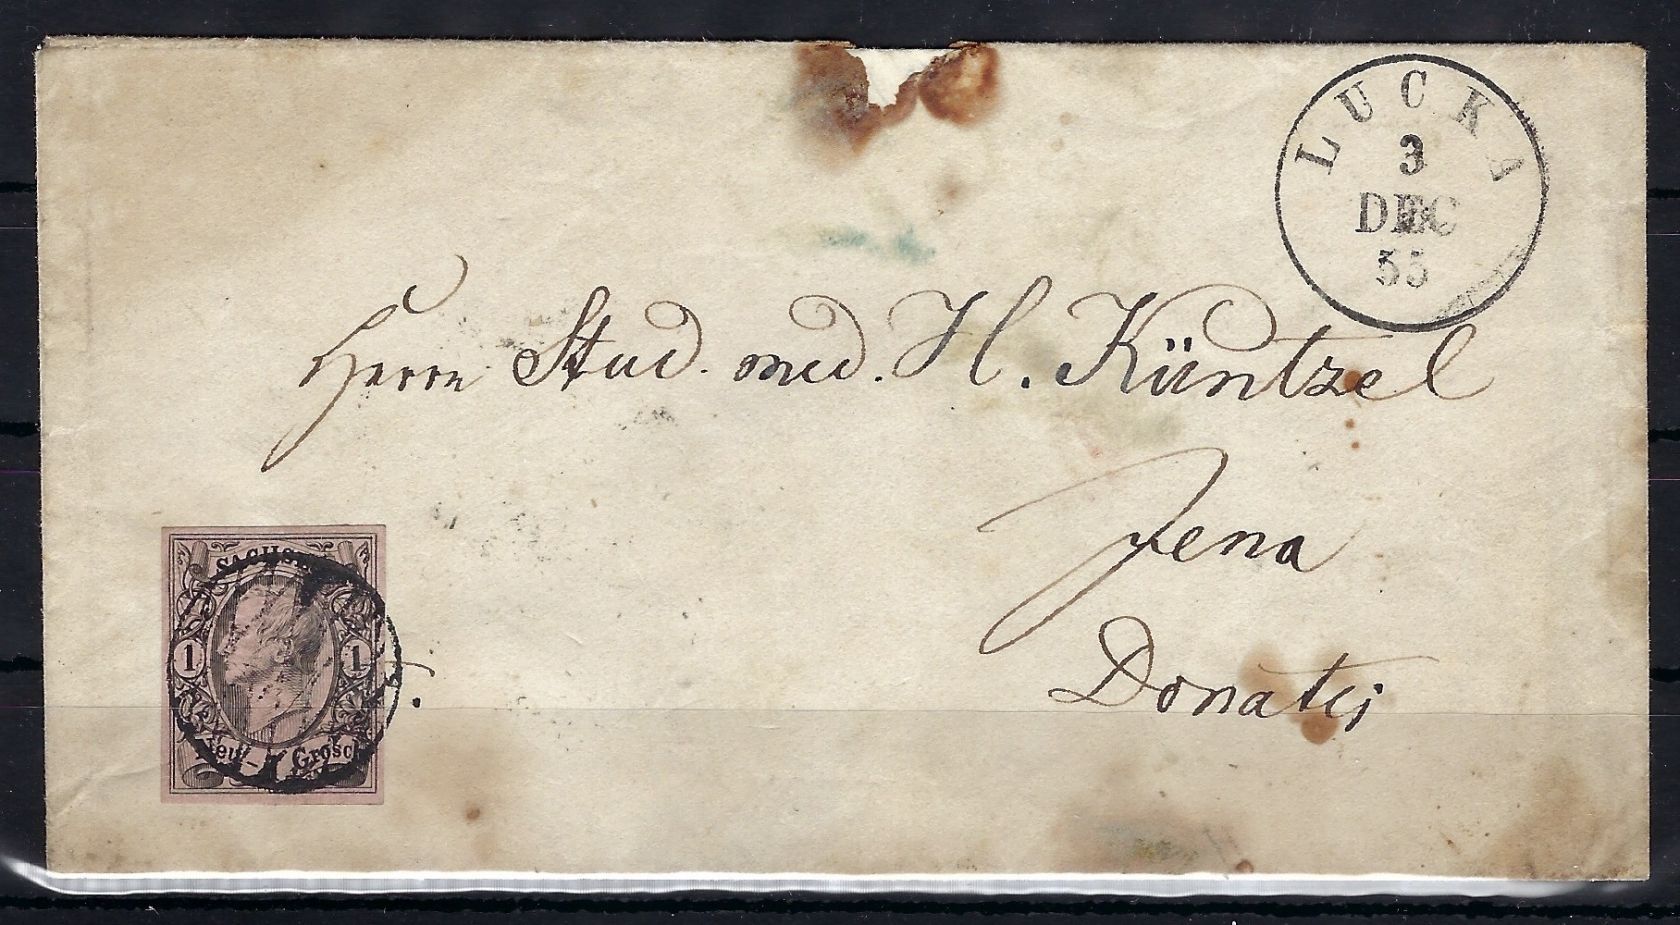 LUCKA
3
DEC
55
Herrn Stud. med. H. Küntzel
Jena
SACHSEN
1 1
Neu-Grosch